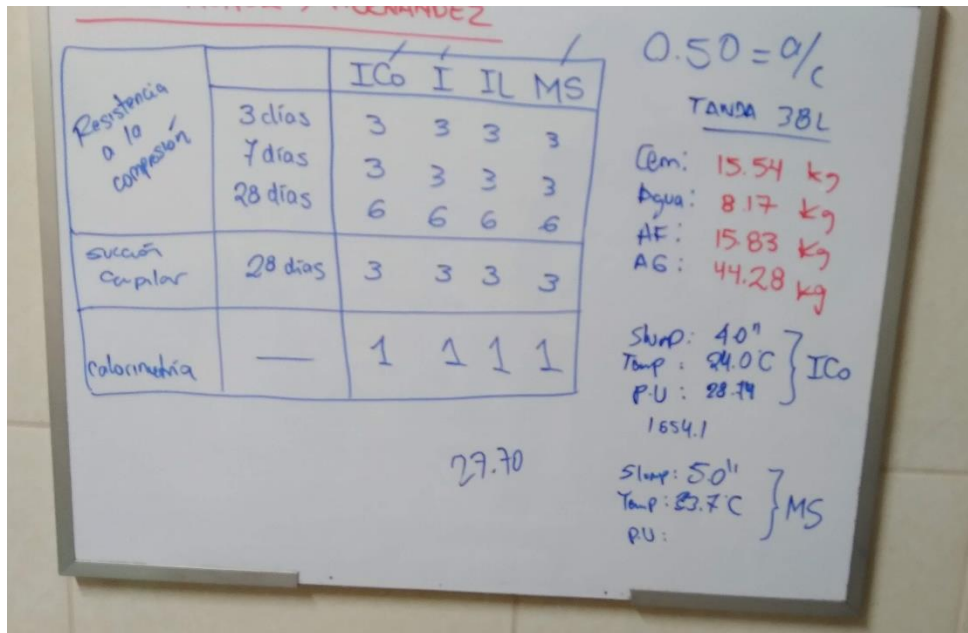 HERNANDEZ
ICo I IL MS
Resistencia
a la
compresión
3 días 3 3 3 3
7 días 3 3 3 3
28 días 6 6 6 6
succión
capilar
28 días 3 3 3 3
Calorimetría — 1 1 1 1
27.70
0.50 = a/c
TANDA 38L
Cem: 15.54 kg
Agua: 8.17 kg
AF: 15.83 kg
AG: 44.28 kg
Slump: 4.0"
Temp: 24.0°C
P.U: 28.74
ICo
1654.1
Slump: 5.0"
Temp: 23.7°C
P.U:
MS